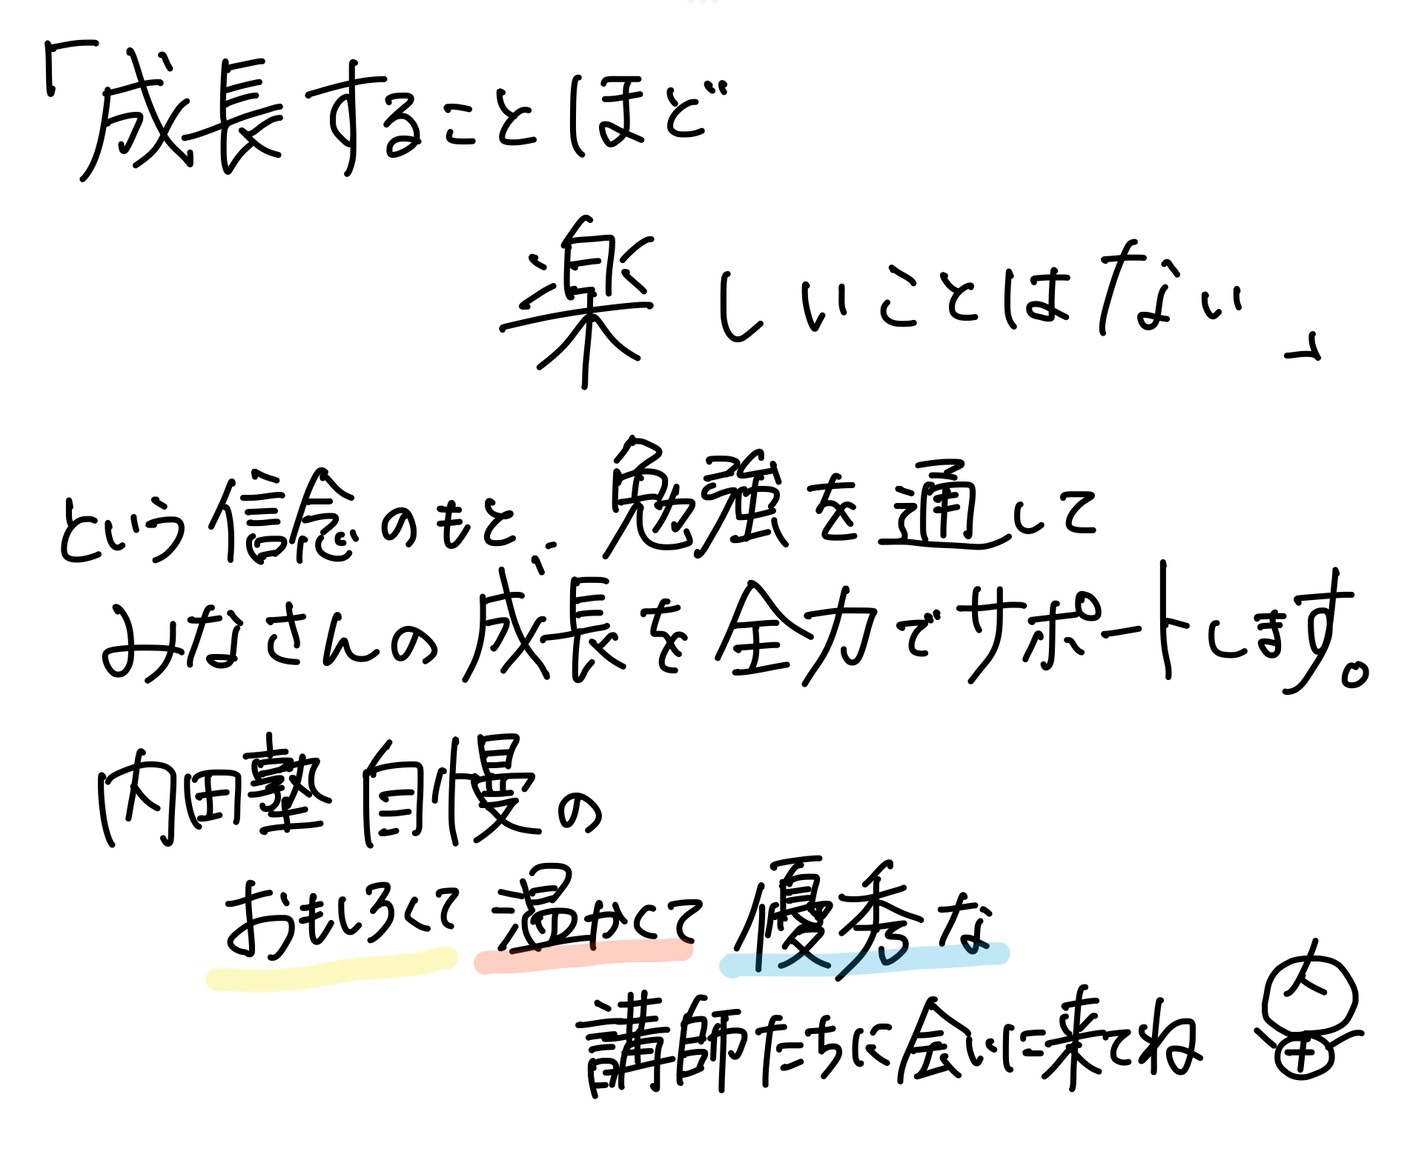 「成長することほど
楽しいことはない」
という信念のもと、勉強を通して
みなさんの成長を全力でサポートします。
内田塾自慢の
おもしろくて温かくて優秀な
講師たちに会いに来てね